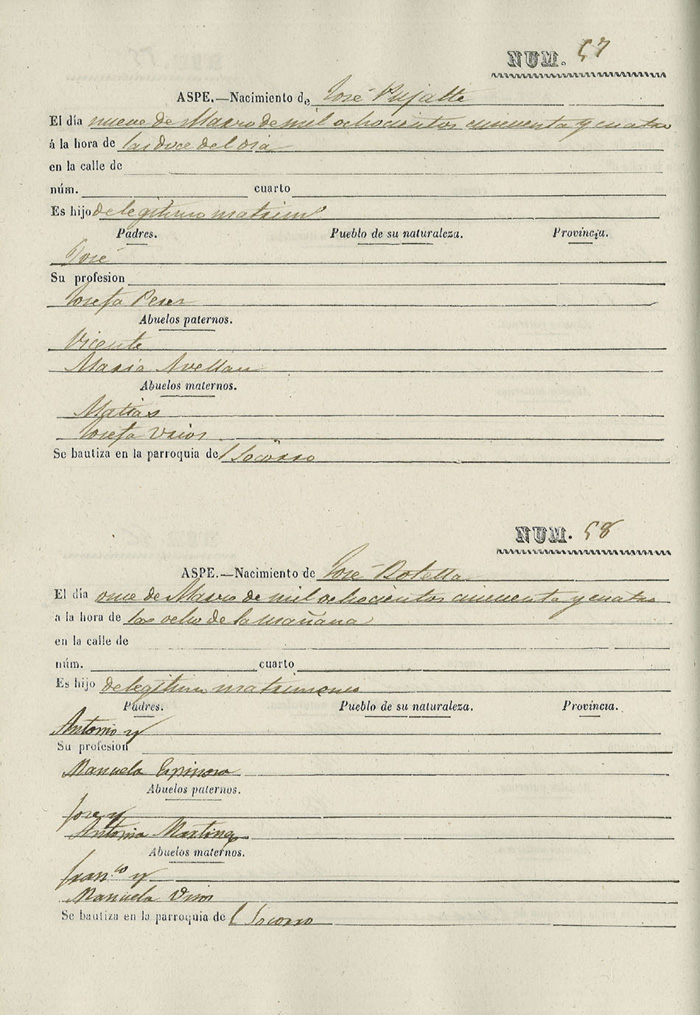 NUM. 57
ASPE.—Nacimiento de José Pujalte
El día nueve de Marzo de mil ochocientos cincuenta y cuatro
á la hora de las doce del dia
en la calle de
núm. cuarto
Es hijo de legitimo matrim.o
Padres. Pueblo de su naturaleza. Provincia.
José
Su profesion
Josefa Perez
Abuelos paternos.
Vicente
Maria Avellan
Abuelos maternos.
Matias
Josefa
Se bautiza en la parroquia del Socorro
NUM. 58
ASPE.—Nacimiento de José Botella
El día once de Marzo de mil ochocientos cincuenta y cuatro
a la hora de las ocho de la mañana
en la calle de
núm. cuarto
Es hijo de legitimo matrimonio
Padres. Pueblo de su naturaleza. Provincia.
Antonio y
Su profesion
Manuela Espinosa
Abuelos paternos.
Jose y
Antonia Martinez
Abuelos maternos.
Fran.co y
Manuela
Se bautiza en la parroquia del Socorro